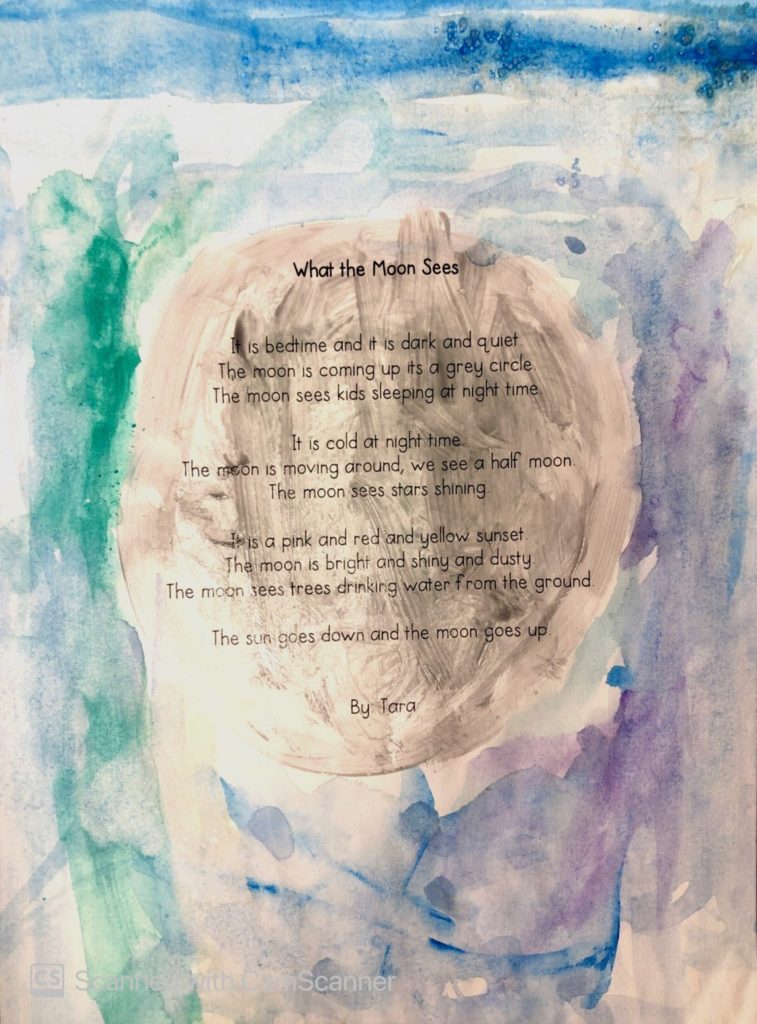 What the Moon Sees
It is bedtime and it is dark and quiet.
The moon is coming up its a grey circle.
The moon sees kids sleeping at night time.
It is cold at night time.
The moon is moving around, we see a half moon.
The moon sees stars shining.
It is a pink and red and yellow sunset.
The moon is bright and shiny and dusty.
The moon sees trees drinking water from the ground.
The sun goes down and the moon goes up.
By: Tara
CS Scanned with CamScanner